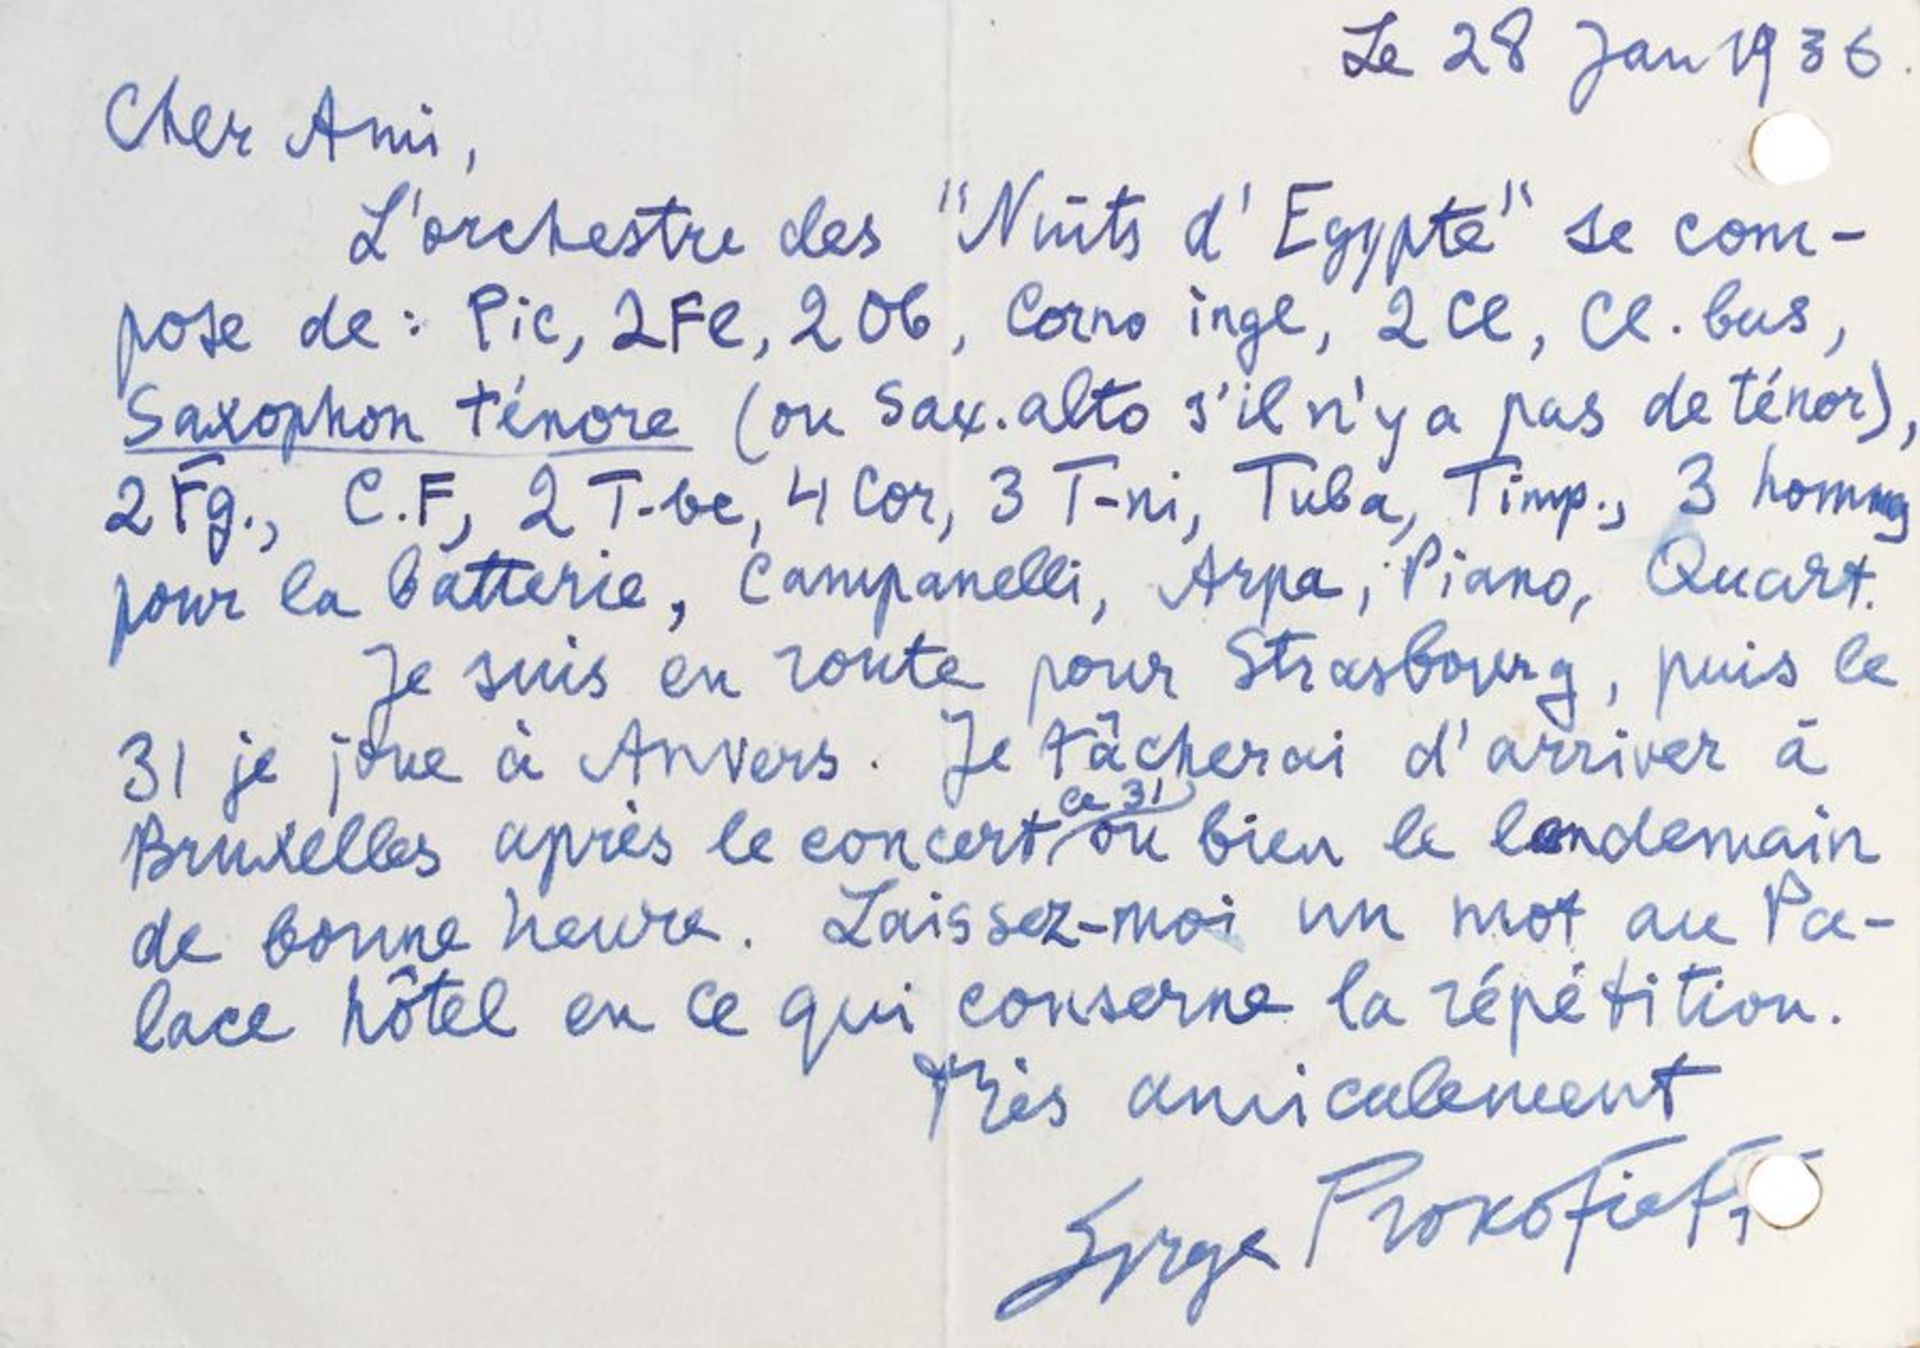 Le 28 Jan 1936.
Cher Ami,
L'orchestre des "Nuits d'Egypte" se com-
pose de: Pic, 2Fl, 2 Ob, Corno ingl, 2 Cl, Cl. bas,
Saxophon ténore (ou Sax. alto s'il n'y a pas de ténor),
2 Fg., C.F, 2 T-be, 4 Cor, 3 T-ni, Tuba, Timp., 3 hommes
pour la batterie, Campanelli, Arpa, Piano, Quart.
Je suis en route pour Strasbourg, puis le
31 je joue à Anvers. Je tâcherai d'arriver à
ce 31
Bruxelles après le concert, ou bien le lendemain
de bonne heure. Laissez-moi un mot au Pa-
lace hôtel en ce qui conserne la répétition.
Très amicalement
Serge Prokofieff